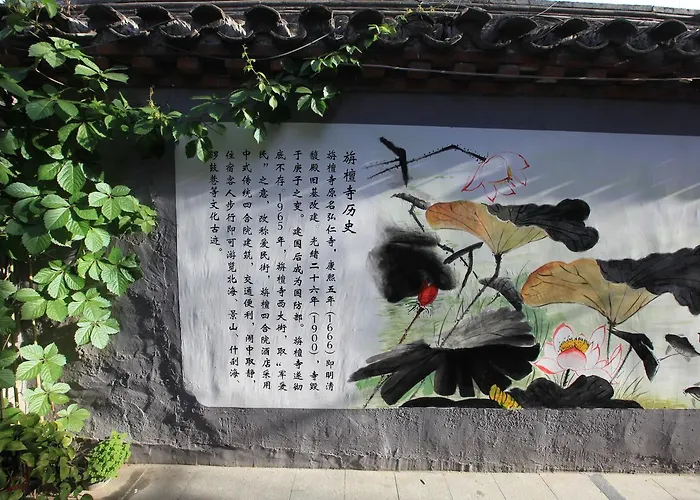 旃檀寺历史
旃檀寺原名弘仁寺，康熙五年(1666)即明清
馥殿旧基改建，光绪二十六年(1900)，寺毁
于庚子之变。建国后成为国防部。旃檀寺遂彻
底不存，1965年，旃檀寺西大街，取“军爱
民”之意，改称爱民街，旃檀四合院酒店采用
中式传统四合院建筑，交通便利，闹中取静，
住宿客人步行即可游览北海，景山，什刹海
锣鼓巷等文化古迹。